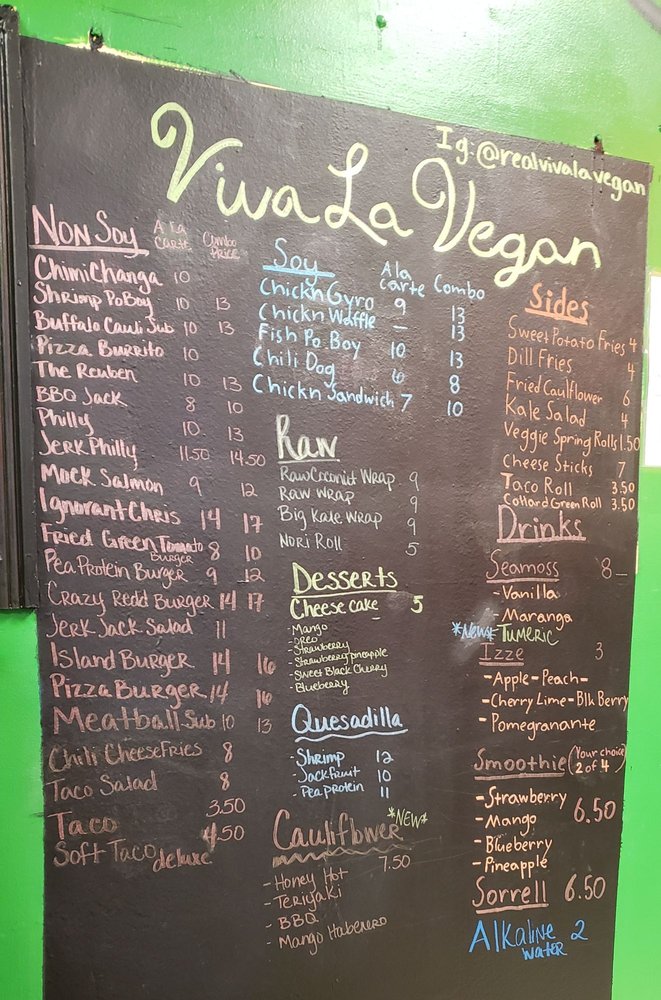 Ig:@realvivalavegan
Viva La Vegan
Non Soy A La Carte Combo Price
Chimichanga 10
Shrimp Po Boy 10 13
Buffalo Cauli Sub 10 13
Pizza Burrito 10
The Reuben 10 13
BBQ Jack 8 10
Philly 10 13
Jerk Philly 11.50 14.50
Mock Salmon 9 12
Ignorant Chris 14 17
Fried Green Tomato Burger 8 10
Pea Protein Burger 9 12
Crazy Redd Burger 14 17
Jerk Jack Salad 11
Island Burger 14 16
Pizza Burger 14 16
Meatball Sub 10 13
Chili Cheese Fries 8
Taco Salad 8
Taco 3.50
Soft Taco deluxe 4.50
Soy A la carte Combo
Chickn Gyro 9 13
Chickn Waffle – 13
Fish Po Boy 10 13
Chili Dog 6 8
Chickn Sandwich 7 10
Raw
Raw Coconut Wrap 9
Raw Wrap 9
Big Kale Wrap 9
Nori Roll 5
Desserts
Cheese cake 5
- Mango
- Oreo
- Strawberry
- Strawberry pineapple
- Sweet Black Cherry
- Blueberry
Quesadilla
- Shrimp 12
- Jackfruit 10
- Pea protein 11
Cauliflower *NEW*
7.50
- Honey Hot
- Teriyaki
- BBQ
- Mango Habenero
Sides
Sweet Potato Fries 4
Dill Fries 4
Fried Caulflower 6
Kale Salad 4
Veggie Spring Rolls 1.50
Cheese Sticks 7
Taco Roll 3.50
Collard Green Roll 3.50
Drinks
Seamoss 8
- Vanilla
- Maranga
*New* Tumeric
Izze 3
- Apple - Peach -
- Cherry Lime - Blk Berry
- Pomegranante
Smoothie (Your choice 2 of 4)
- Strawberry 6.50
- Mango
- Blueberry
- Pineapple
Sorrell 6.50
Alkaline Water 2